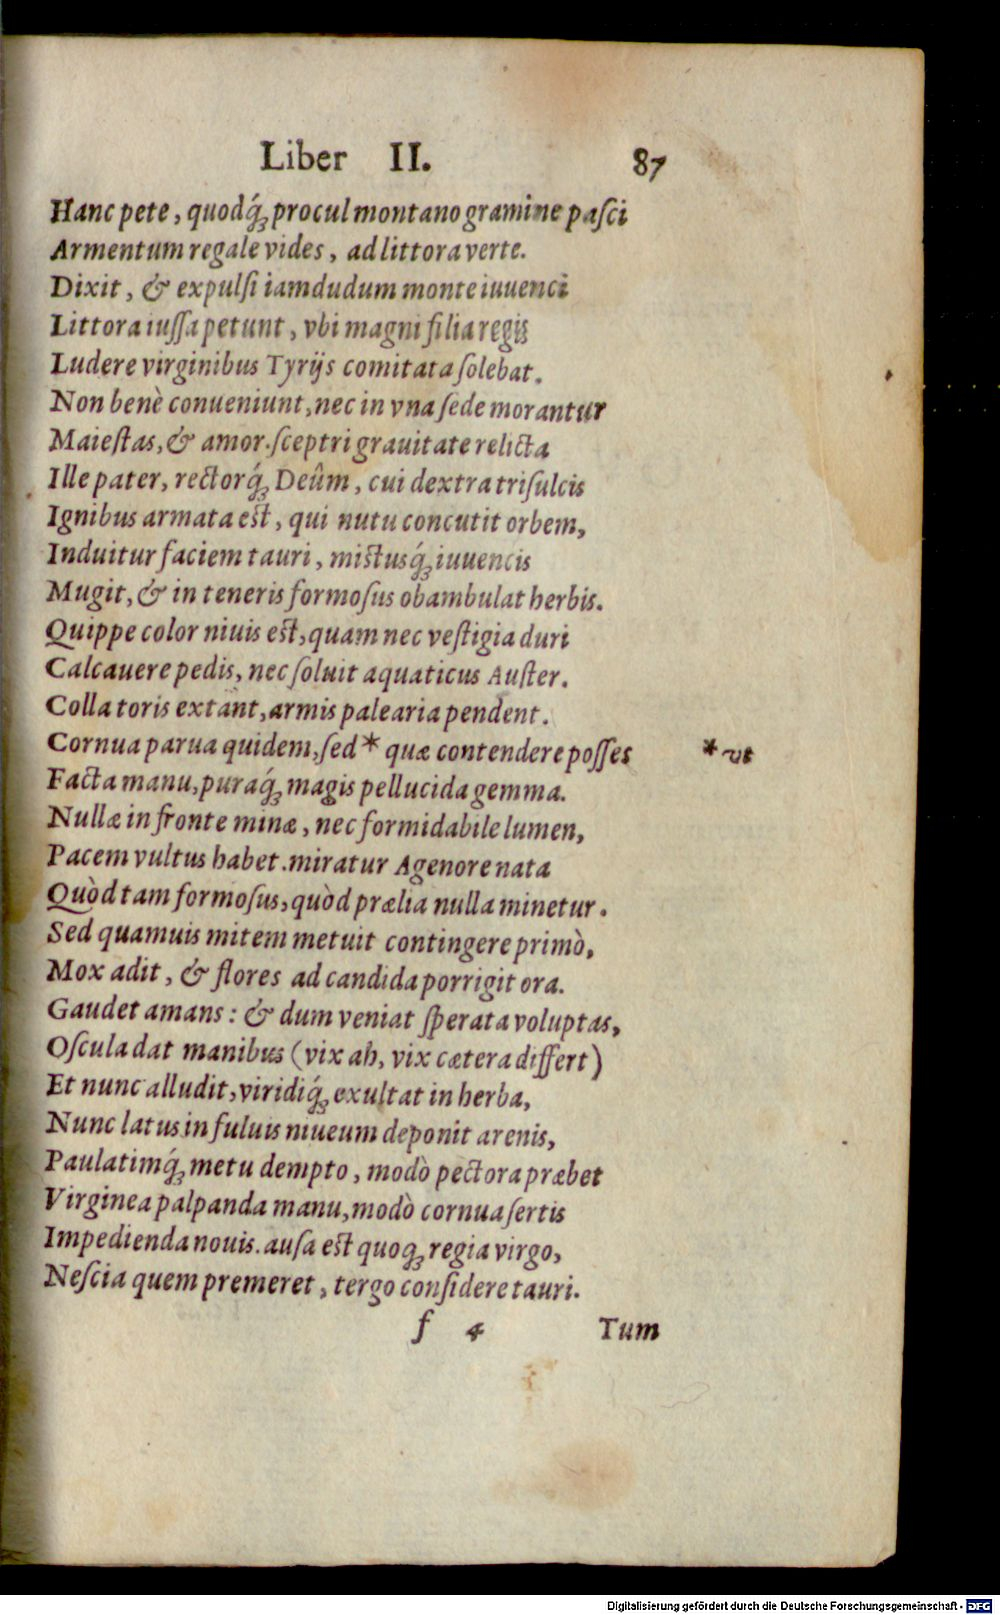 Liber II. 87
Hanc pete, quodq́ꝫ procul montano gramine paſci
Armentum regale vides, ad littora verte.
Dixit, & expulſi iamdudum monte iuuenci
Littora iuſſa petunt, vbi magni filia regis
Ludere virginibus Tyrijs comitata ſolebat.
Non benè conueniunt, nec in vna ſede morantur
Maieſtas, & amor. ſceptri grauitate relicta
Ille pater, rectorq́ꝫ Deûm, cui dextra triſulcis
Ignibus armata eſt, qui nutu concutit orbem,
Induitur faciem tauri, miſtusq́ꝫ iuuencis
Mugit, & in teneris formoſus obambulat herbis.
Quippe color niuis eſt, quam nec veſtigia duri
Calcauere pedis, nec ſoluit aquaticus Auſter.
Colla toris extant, armis palearia pendent.
Cornua parua quidem, ſed * quæ contendere poſſes * vt
Facta manu, puraq́ꝫ magis pellucida gemma.
Nullæ in fronte minæ, nec formidabile lumen,
Pacem vultus habet. miratur Agenore nata
Quòd tam formoſus, quòd prælia nulla minetur.
Sed quamuis mitem metuit contingere primò,
Mox adit, & flores ad candida porrigit ora.
Gaudet amans: & dum veniat ſperata voluptas,
Oſcula dat manibus (vix ah, vix cætera differt)
Et nunc alludit, viridiq́ꝫ exultat in herba,
Nunc latus in fuluis niueum deponit arenis,
Paulatimq́ꝫ metu dempto, modò pectora præbet
Virginea palpanda manu, modò cornua ſertis
Impedienda nouis. auſa eſt quoqꝫ regia virgo,
Neſcia quem premeret, tergo conſidere tauri.
f 4 Tum
Digitalisierung gefördert durch die Deutsche Forschungsgemeinschaft - DFG